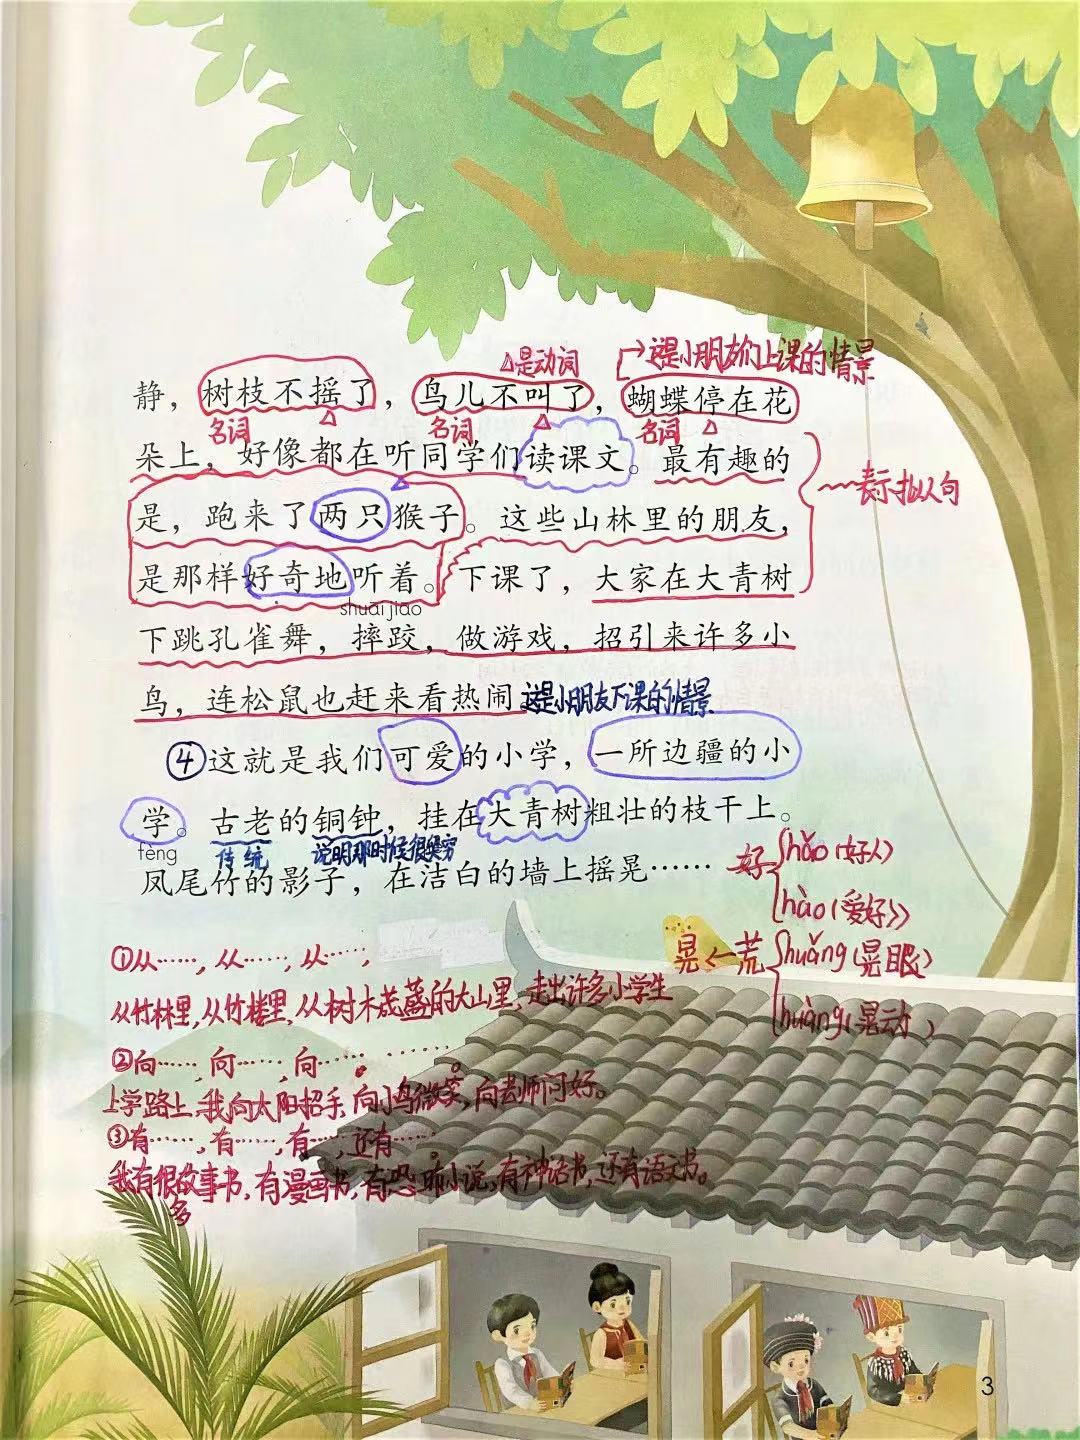 △是动词
这是小朋友们上课的情景
静，树枝不摇了，鸟儿不叫了，蝴蝶停在花
名词 名词 名词
朵上，好像都在听同学们读课文。最有趣的
表示拟人句
是，跑来了两只猴子。这些山林里的朋友，
是那样好奇地听着。下课了，大家在大青树
shuāi jiāo
下跳孔雀舞，摔跤，做游戏，招引来许多小
鸟，连松鼠也赶来看热闹。这是小朋友下课的情景
④这就是我们可爱的小学，一所边疆的小
学。古老的铜钟，挂在大青树粗壮的枝干上。
fèng 传统 说明那时候很贫穷
凤尾竹的影子，在洁白的墙上摇晃……
好 hǎo（好人）
hào（爱好）
晃 huǎng（晃眼）
huàng（晃动）
①从……，从……，从……，
从竹林里，从竹楼里，从树木茂盛的大山里，走出许多小学生
②向……，向……，向……。
上学路上，我向太阳招手，向小鸟微笑，向老师问好。
③有……，有……，有……，还有……。
我有很多故事书，有漫画书，有恐怖小说，有神话书，还有语文书。
3